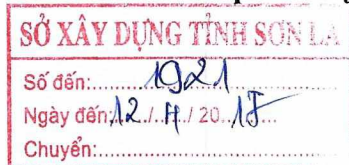 SỞ XÂY DỰNG TỈNH SƠN LA
Số đến:.........1921
Ngày đến:12./.../ 20.......
Chuyển:.........